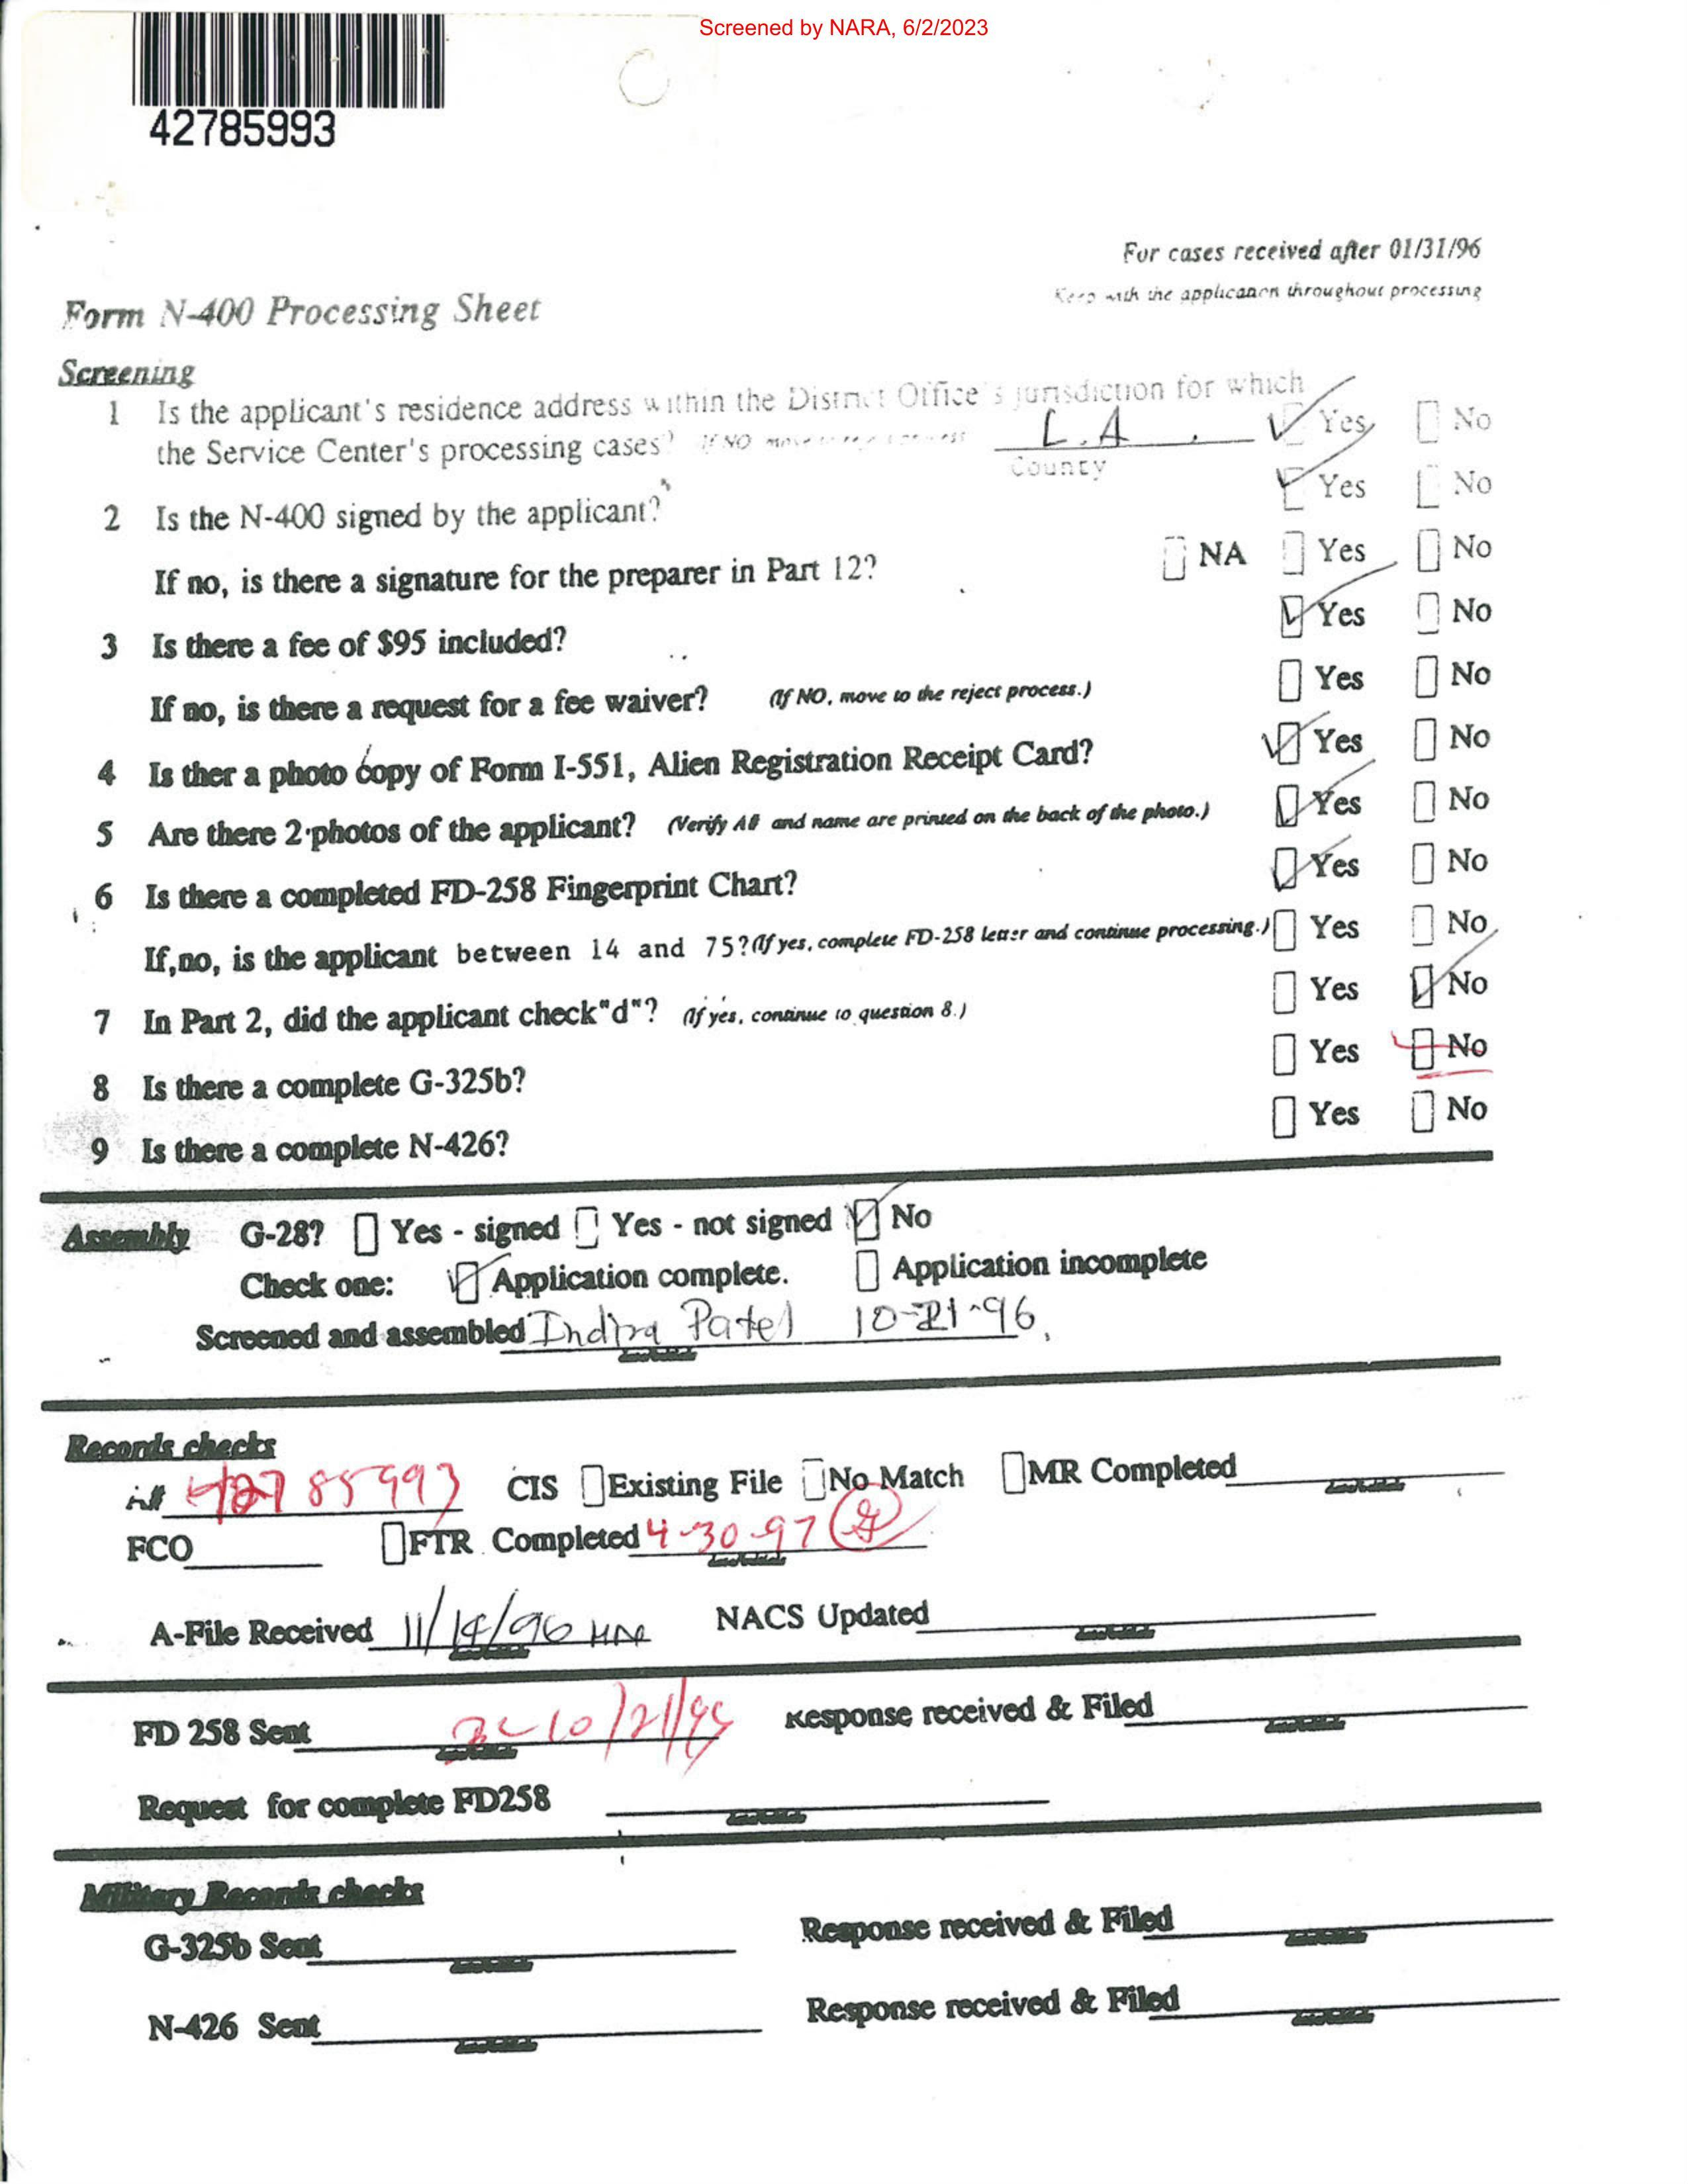 Screened by NARA, 6/2/2023
42785993
For cases received after 01/31/96
Keep with the application throughout processing
Form N-400 Processing Sheet
Screening
1 Is the applicant's residence address within the District Office's jurisdiction for which
the Service Center's processing cases? If NO move to L.A. Yes No
County
2 Is the N-400 signed by the applicant? Yes No
If no, is there a signature for the preparer in Part 12? NA Yes No
3 Is there a fee of $95 included? Yes No
If no, is there a request for a fee waiver? (If NO, move to the reject process.) Yes No
4 Is ther a photo copy of Form I-551, Alien Registration Receipt Card? Yes No
5 Are there 2 photos of the applicant? (Verify A# and name are printed on the back of the photo.) Yes No
6 Is there a completed FD-258 Fingerprint Chart? Yes No
If,no, is the applicant between 14 and 75? (If yes, complete FD-258 letter and continue processing.) Yes No
7 In Part 2, did the applicant check"d"? (If yes, continue to question 8.) Yes No
8 Is there a complete G-325b? Yes No
9 Is there a complete N-426? Yes No
Assembly G-28? Yes - signed Yes - not signed No
Check one: Application complete. Application incomplete
Screened and assembled Indira Patel 10-21-96
Records checks
A# 42785993 CIS Existing File No Match MR Completed
FCO FTR Completed 4-30-97
A-File Received 11/14/96 NACS Updated
FD 258 Sent 10/21/ Response received & Filed
Request for complete FD258
Military Records checks
G-325b Sent Response received & Filed
N-426 Sent Response received & Filed